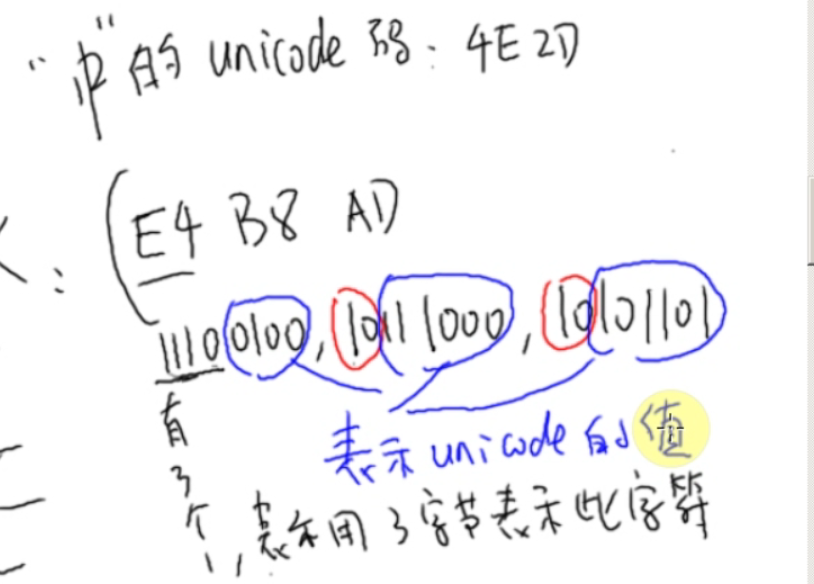 “中”的 unicode 码: 4E2D
E4 B8 AD
11100100, 10111000, 10101101
表示 unicode 的值
有3个1, 表示用3字节表示此字符